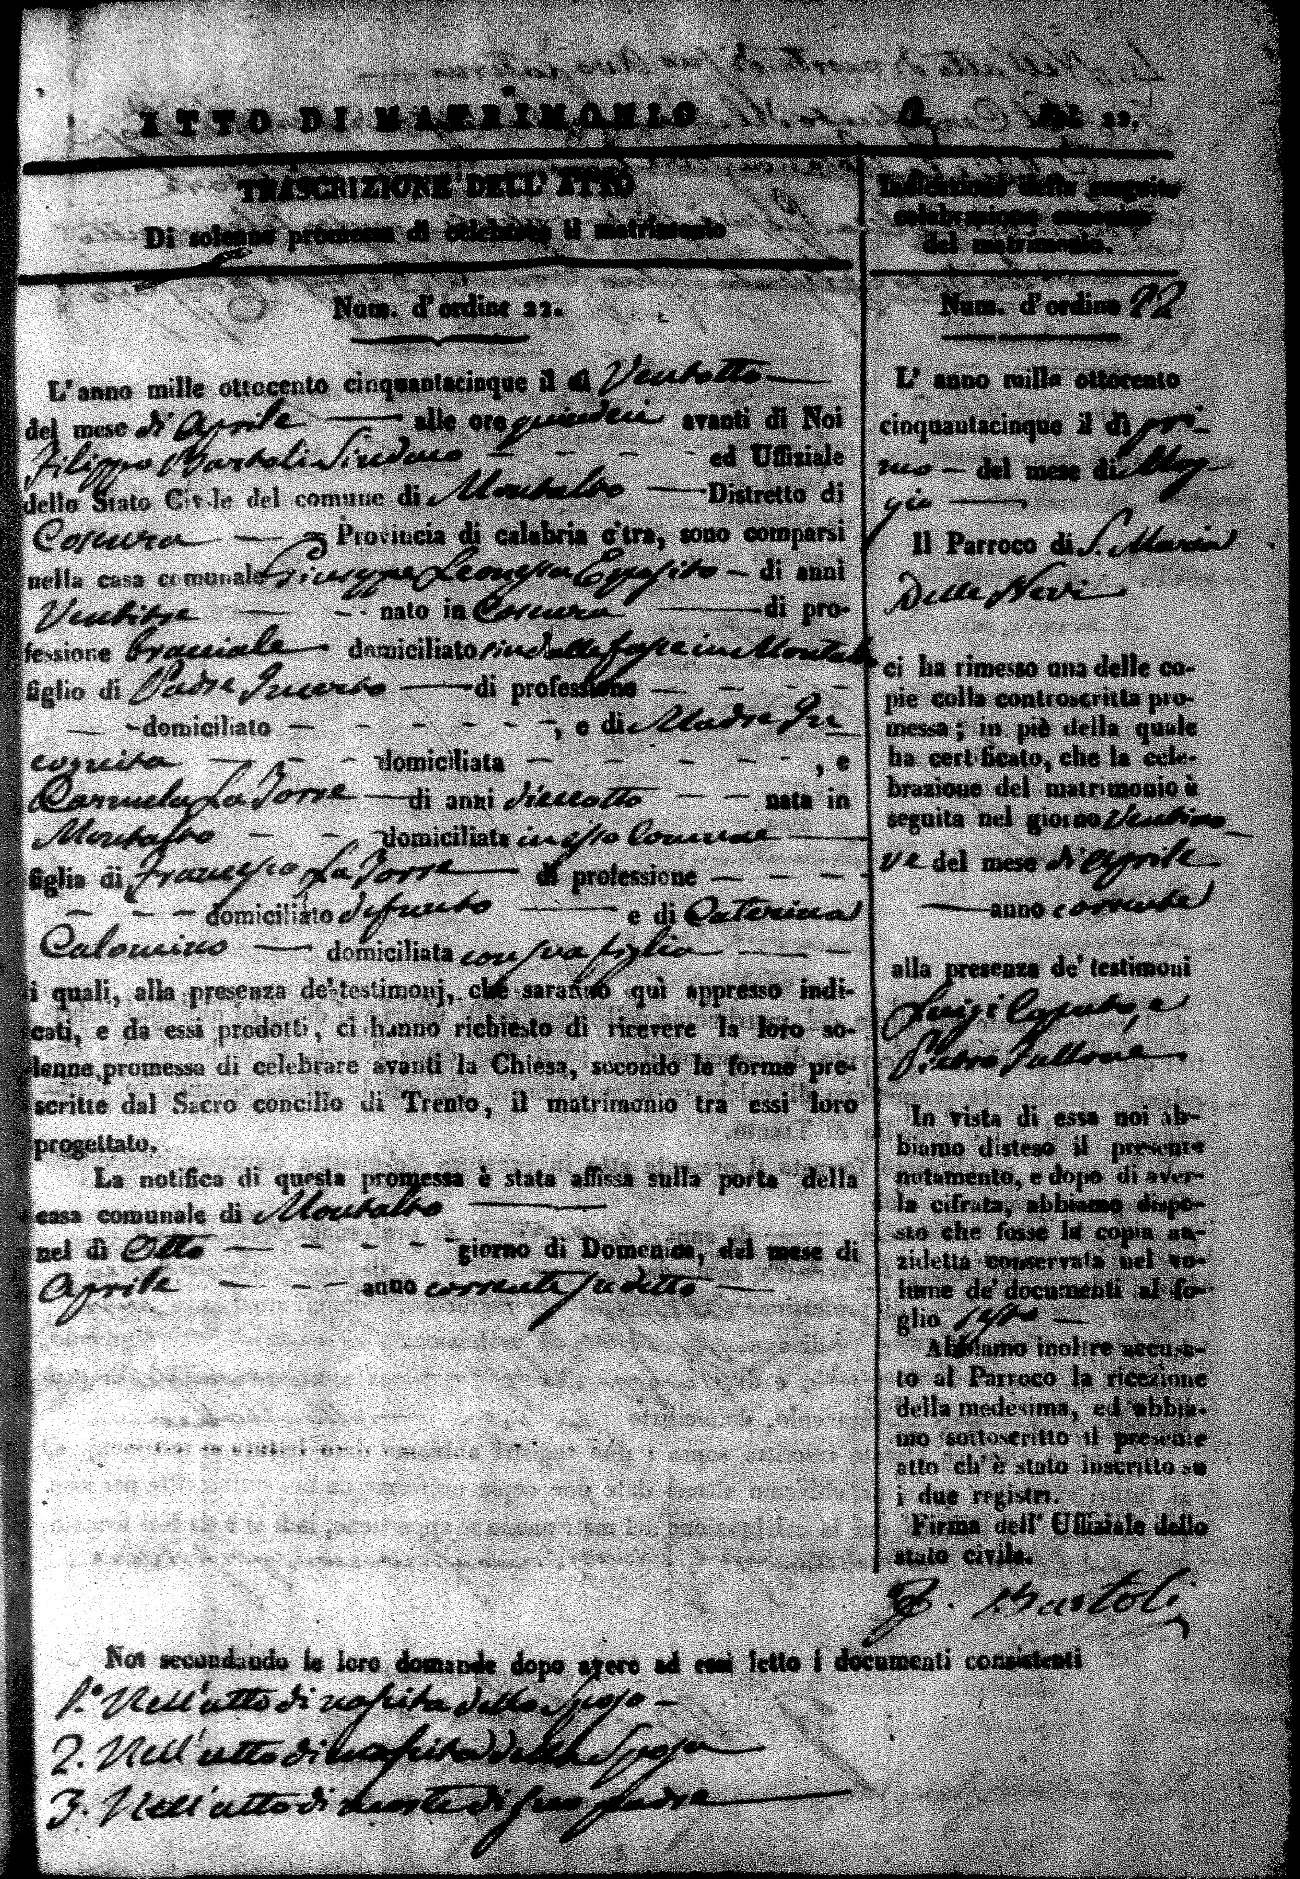 ATTO DI MATRIMONIO
TRASCRIZIONE DELL' ATTO
Di solenne promessa di celebrare il matrimonio
Num. d'ordine 22.
L'anno mille ottocento cinquantacinque il dì Ventotto
del mese di Aprile alle ore quindeci avanti di Noi
Filippo Bartoli Sindaco ed Uffiziale
dello Stato Civile del comune di Montalto Distretto di
Cosenza Provincia di calabria citra, sono comparsi
nella casa comunale Giuseppe Leonessa Esposito di anni
Ventitre nato in Cosenza di pro-
fessione bracciale domiciliato sin dalle fasce in Montalto
figlio di Padre Incerto di professione
domiciliato , e di Madre In
cognita domiciliata , e
Carmela La Torre di anni dieciotto nata in
Montalto domiciliata in esso Comune
figlia di Francesco La Torre di professione
domiciliato defunto e di Caterina
Calomino domiciliata con sua figlia
i quali, alla presenza de' testimonj, che saranno quì appresso indi-
cati, e da essi prodotti, ci hanno richiesto di ricevere la loro so-
lenne promessa di celebrare avanti la Chiesa, secondo le forme pre-
scritte dal Sacro concilio di Trento, il matrimonio tra essi loro
progettato.
La notifica di questa promessa è stata affissa sulla porta della
casa comunale di Montalto
nel dì Otto giorno di Domenica, del mese di
Aprile anno corrente sudetto
Indicazione della seguita
celebrazione canonica
del matrimonio.
Num. d'ordine 22
L' anno mille ottocento
cinquantacinque il dì pri-
mo del mese di Mag-
gio
Il Parroco di S. Maria
Delle Nevi
ci ha rimesso una delle co-
pie colla controscritta pro-
messa; in piè della quale
ha certificato, che la cele-
brazione del matrimonio è
seguita nel giorno Ventino
ve del mese di Aprile
anno corrente
alla presenza de' testimoni
Luigi Caputo, e
Pietro Fallone
In vista di essa noi ab-
biamo disteso il presente
notamento, e dopo di aver-
la cifrata, abbiamo dispo-
sto che fosse la copia an-
zidetta conservata nel vo-
lume de' documenti al fo-
glio
Abbiamo inoltre accusa-
to al Parroco la ricezione
della medesima, ed abbia-
mo sottoscritto il presente
atto ch' è stato inscritto su
i due registri.
Firma dell' Uffiziale dello
stato civile.
F. Bartoli
Noi secundando le loro domande dopo avere ad essi letto i documenti consistenti
1.° Nell'atto di nascita dello Sposo
2. Nell'atto di nascita della Sposa
3. Nell'atto di morte di suo padre